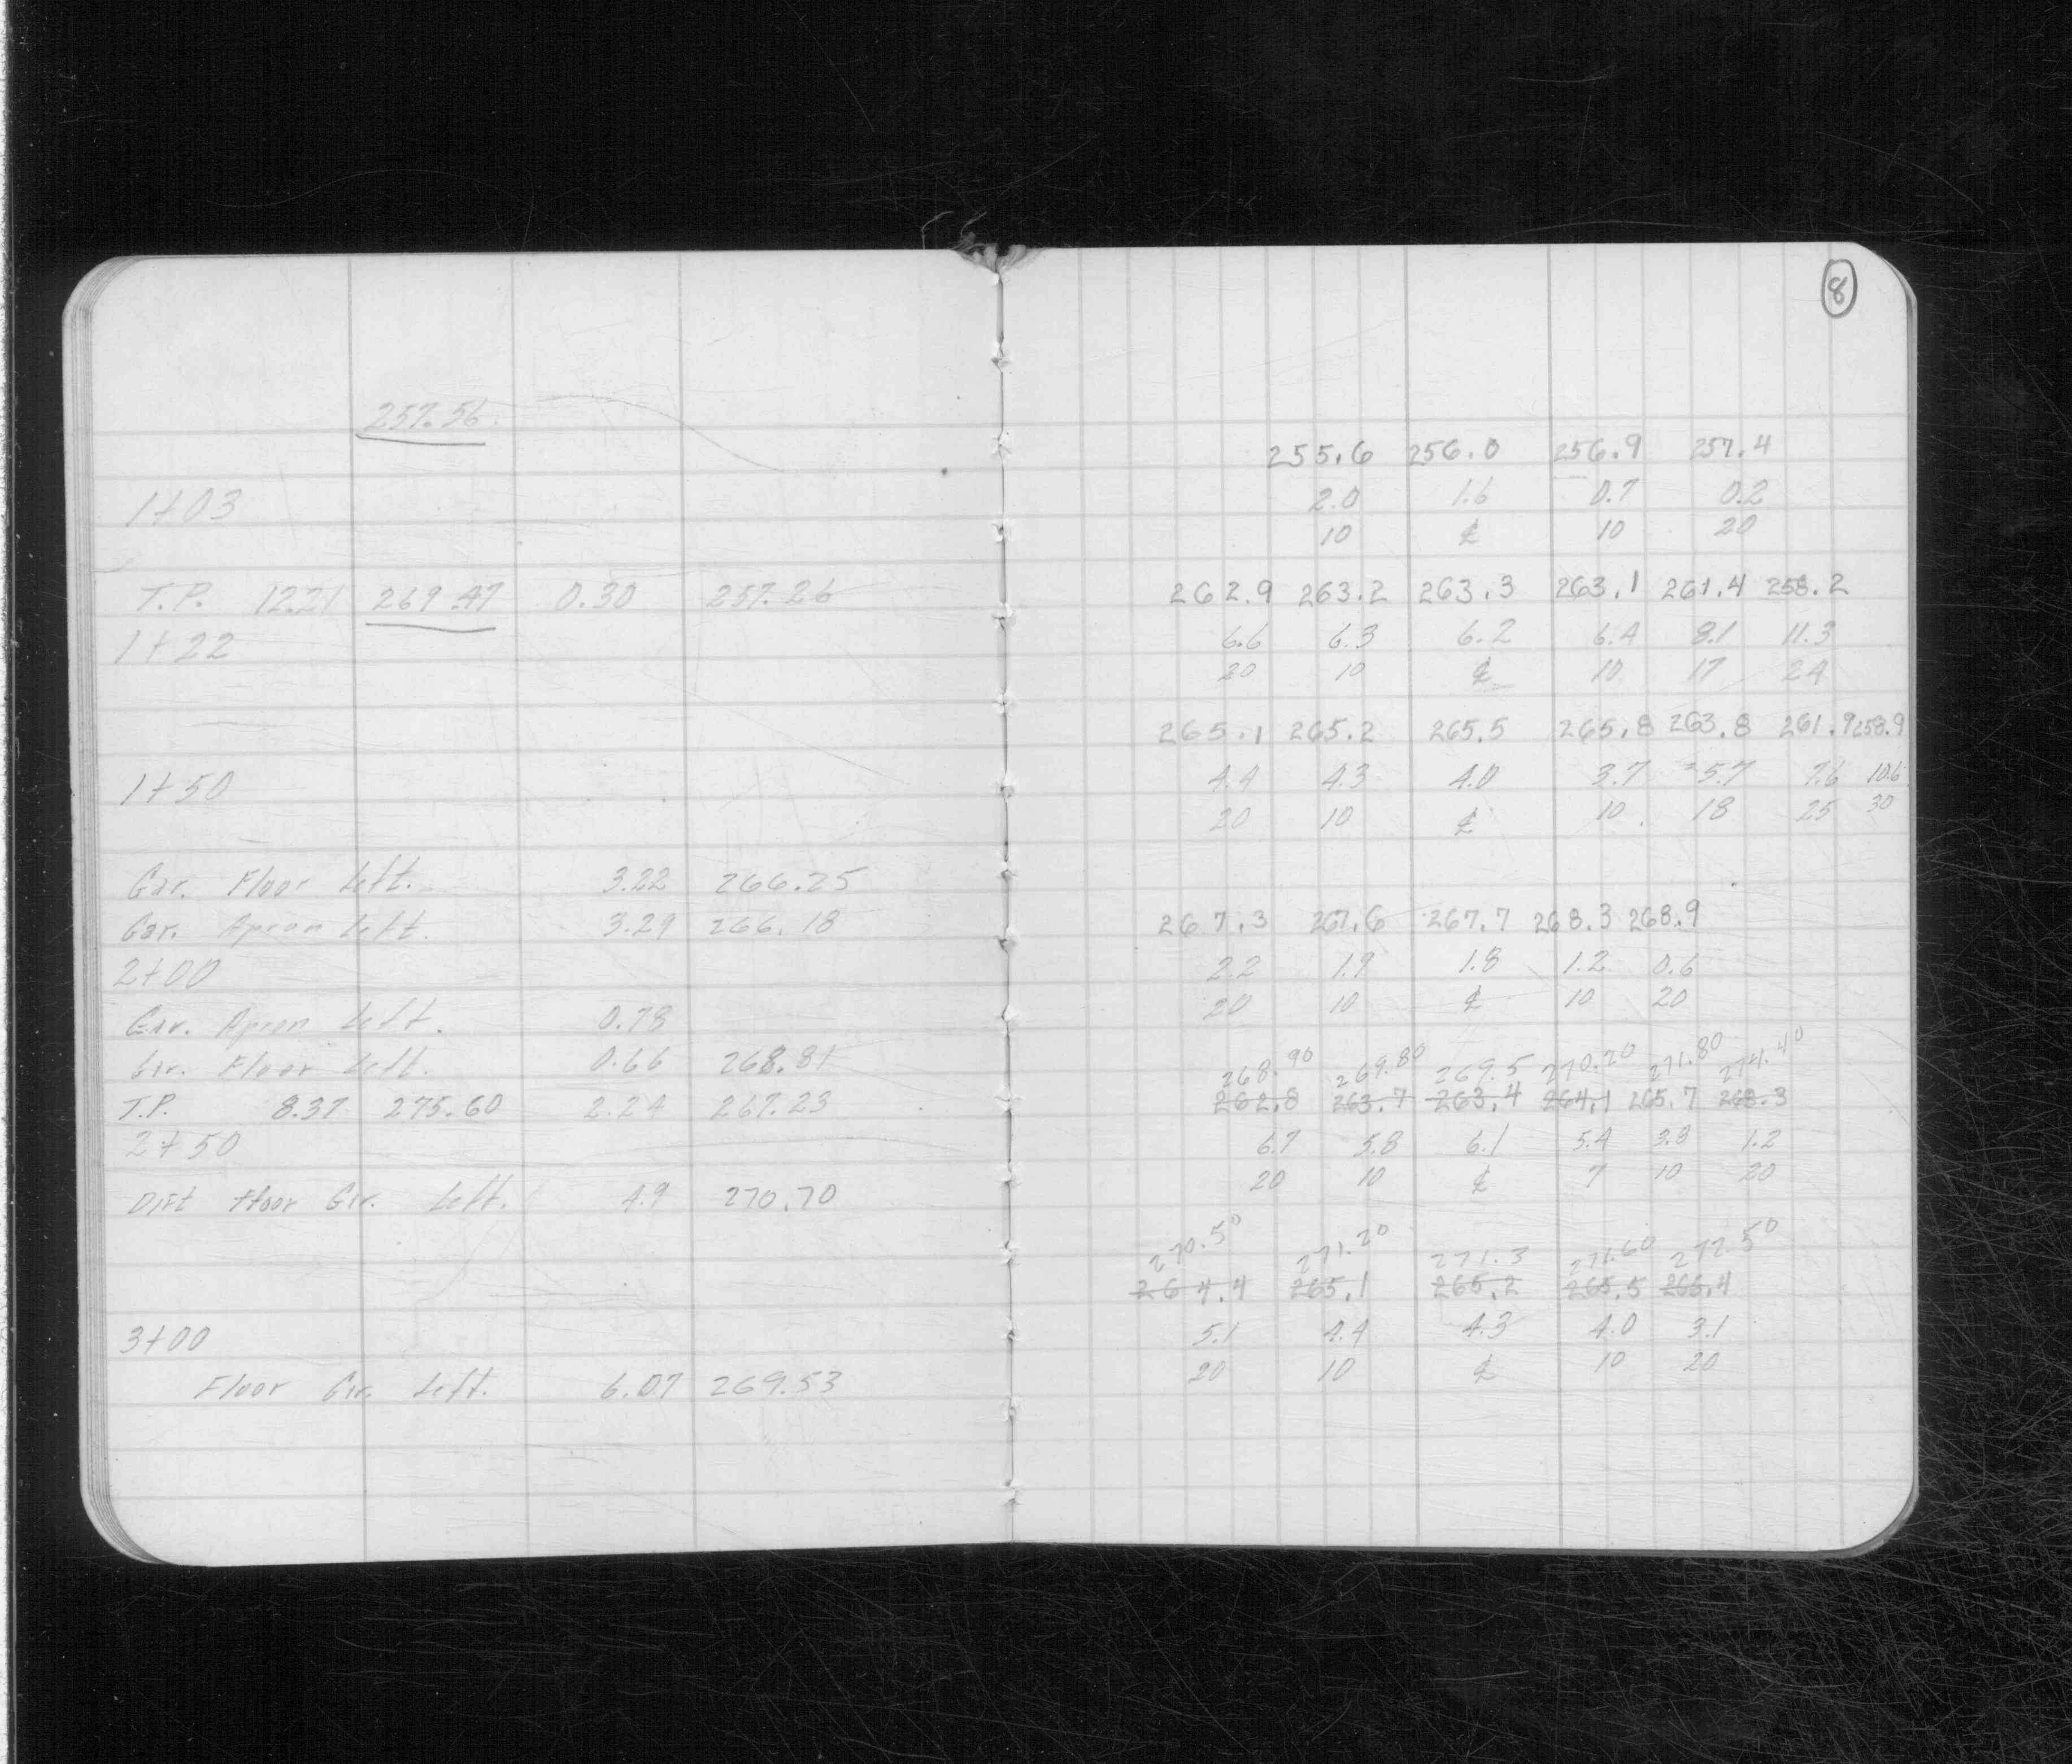 257.56
1+03
T.P. 12.21 269.47 0.30 257.26
1+22
1+50
Gar. Floor Left. 3.22 266.25
Gar. Apron Left. 3.29 266.18
2+00
Gar. Apron Left. 0.78
Gar. Floor Left. 0.66 268.81
T.P. 8.37 275.60 2.24 267.23
2+50
Dirt Floor Gar. Left. 4.9 270.70
3+00
Floor Gar. Left. 6.07 269.53
8
255.6 256.0 256.9 257.4
2.0 1.6 0.7 0.2
10 ℄ 10 20
262.9 263.2 263.3 263.1 261.4 258.2
6.6 6.3 6.2 6.4 8.1 11.3
20 10 ℄ 10 17 24
265.1 265.2 265.5 265.8 263.8 261.9 258.9
4.4 4.3 4.0 3.7 5.7 7.6 10.6
20 10 ℄ 10 18 25 30
267.3 267.6 267.7 268.3 268.9
2.2 1.9 1.8 1.2 0.6
20 10 ℄ 10 20
268.90 269.80 269.5 270.20 271.80 274.40
262.8 263.7 263.4 264.1 265.7 268.3
6.7 5.8 6.1 5.4 3.8 1.2
20 10 ℄ 7 10 20
270.50 271.20 271.3 271.60 272.50
264.4 265.1 265.2 265.5 266.4
5.1 4.4 4.3 4.0 3.1
20 10 ℄ 10 20